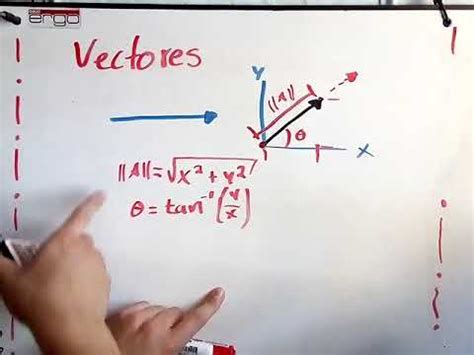 ergo
Vectores
Y
||A||
θ
X
||A|| = √x² + y²
θ = tan⁻¹ (y/x)